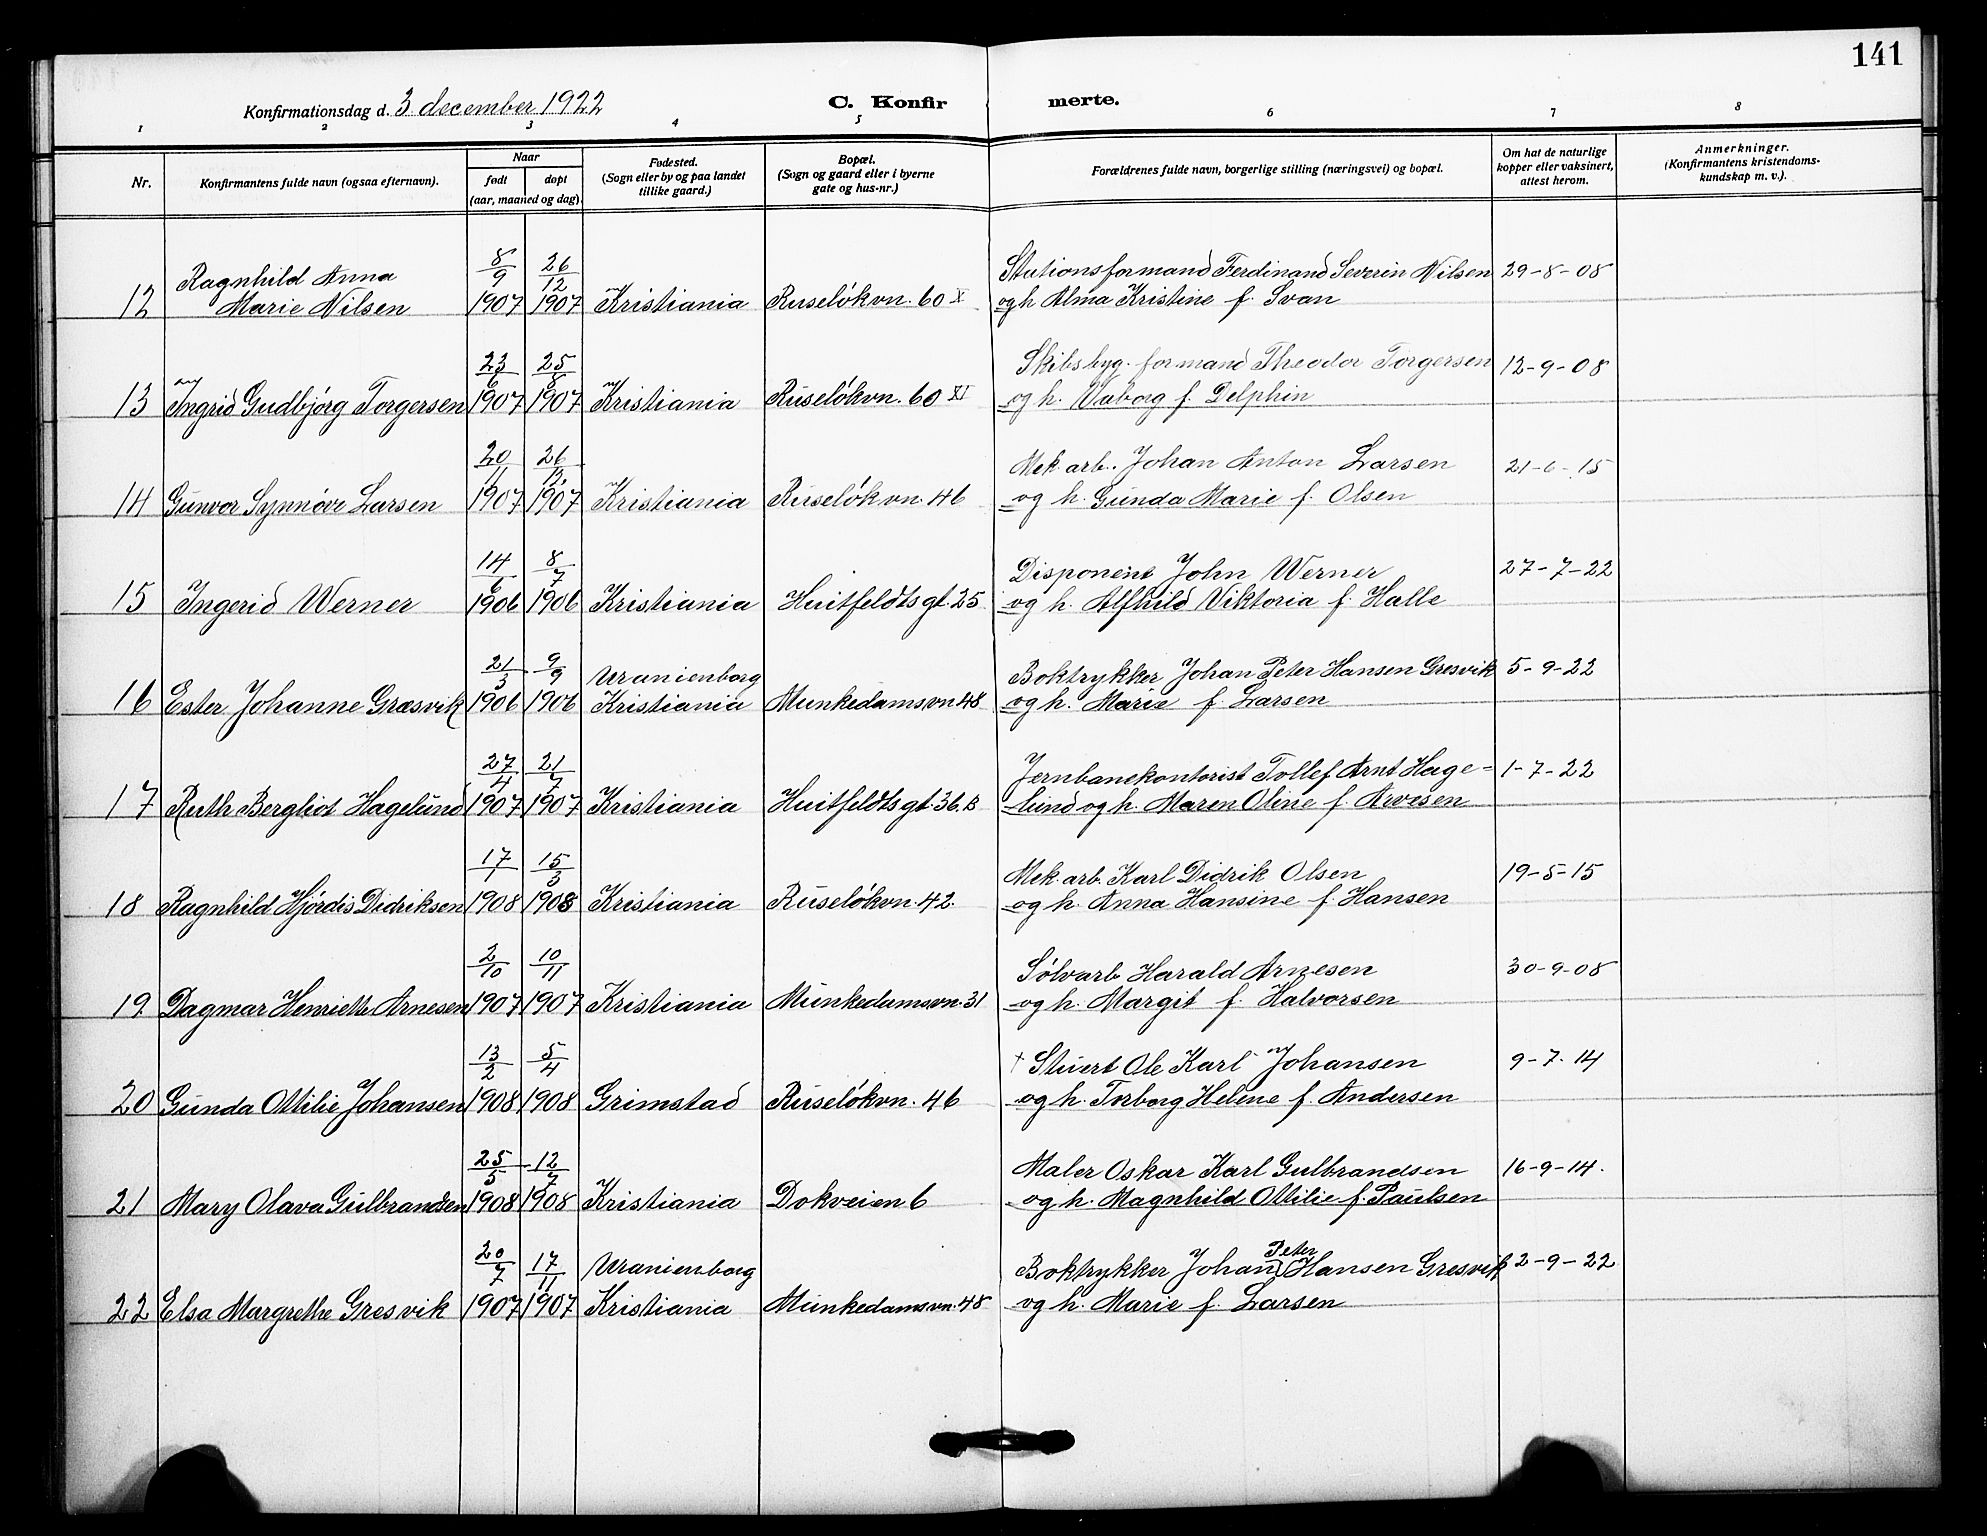 141
Konfirmationsdag d. 3. december 1922
C. Konfirmerte.
1 2 3 4 5 6 7 8
Nr.
Konfirmantens fulde navn (ogsaa efternavn).
Naar
født
døpt
(aar, maaned og dag).
Fødested.
(Sogn eller by og paa landet
tillike gaard.)
Bopæl.
(Sogn og gaard eller i byerne
gate og hus-nr.)
Forældrenes fulde navn, borgerlige stilling (næringsvei) og bopæl.
Om hat de naturlige
kopper eller vaksinert,
attest herom.
Anmerkninger.
(Konfirmantens kristendoms-
kundskap m. v.).
Ragnhild Anna 8/9 26/12 Stationsformand Ferdinand Severin Nilsen 29-8-08
12 Marie Nilsen 1907 1907 Kristiania Ruseløkvn. 60 X og h. Alma Kristine f. Svan
23/6 25/8 Skibsbyg. formand Theodor Torgersen 12-9-08
13 Ingrid Gudbjørg Torgersen 1907 1907 Kristiania Ruseløkvn. 60 XI og h. Valborg f. Delphin
20/11 26/12 Mek. arb. Johan Anton Larsen 21-6-15
14 Gunvor Synnøve Larsen 1907 1907 Kristiania Ruseløkvn. 46 og h. Gunda Marie f. Olsen
14/6 8/7 Disponent John Werner 27-7-22
15 Ingerid Werner 1906 1906 Kristiania Huitfeldtsgt. 25 og h. Alfhild Viktoria f. Halle
21/3 9/9 Uranienborg Boktrykker Johan Peter Hansen Gresvik 5-9-22
16 Ester Johanne Græsvik 1906 1906 Kristiania Munkedamsvn. 48 og h. Marie f. Larsen
27/4 21/7 Jernbanekontorist Tollef Arnt Hage- 1-7-22
17 Ruth Bergliot Hagelund 1907 1907 Kristiania Huitfeldtsgt. 36.B lund og h. Maren Oline f. Arvesen
17/1 15/3 Mek. arb. Karl Didrik Olsen 19-5-15
18 Ragnhild Hjørdis Didriksen 1908 1908 Kristiania Ruseløkvn. 42. og h. Anna Hansine f. Hansen
2/10 10/11 Sølvarb Harald Arnesen 30-9-08
19 Dagmar Henriette Arnesen 1907 1907 Kristiania Munkedamsvn. 31 og h. Margit f. Halvorsen
13/2 5/4 † Stuert Ole Karl Johansen 9-7-14
20 Gunda Ottilie Johansen 1908 1908 Grimstad Ruseløkvn. 46 og h. Torborg Helene f. Andersen
25/5 12/7 Maler Oskar Karl Gulbrandsen 16-9-14.
21 Mary Olava Gulbrandsen 1908 1908 Kristiania Dokveien 6 og h. Magnhild Ottilie f. Paulsen
20/7 17/11 Uranienborg Boktrykker Johan Peter Hansen Gresvik 2-9-22
22 Elsa Margrethe Gresvik 1907 1907 Kristiania Munkedamsvn. 48 og h. Marie f. Larsen